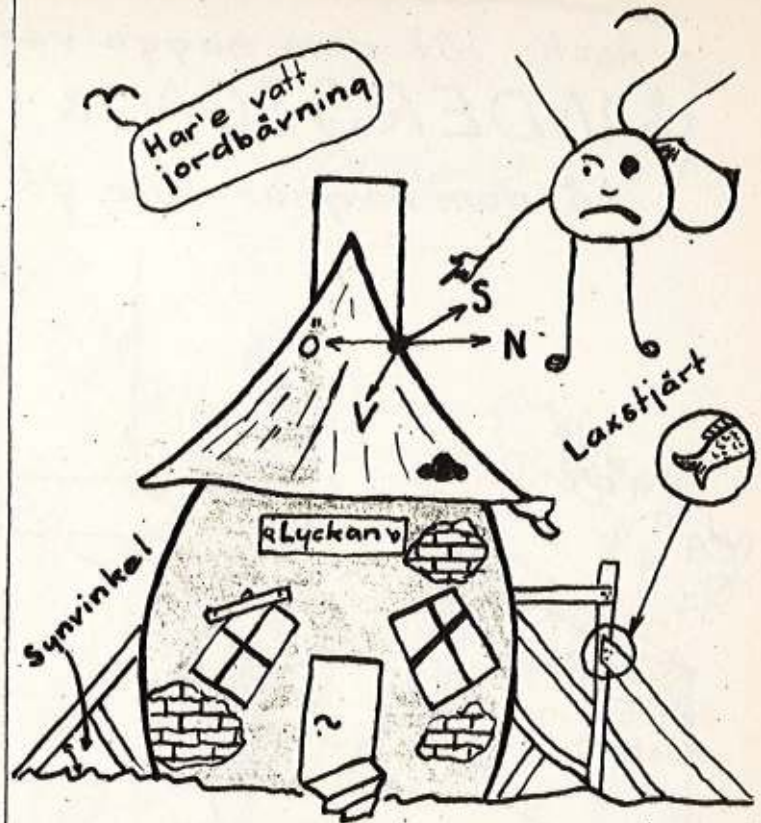 Har'e vatt
jordbävning
S
Ö
N
V
Laxstjärt
«Lyckan»
Synvinkel
~